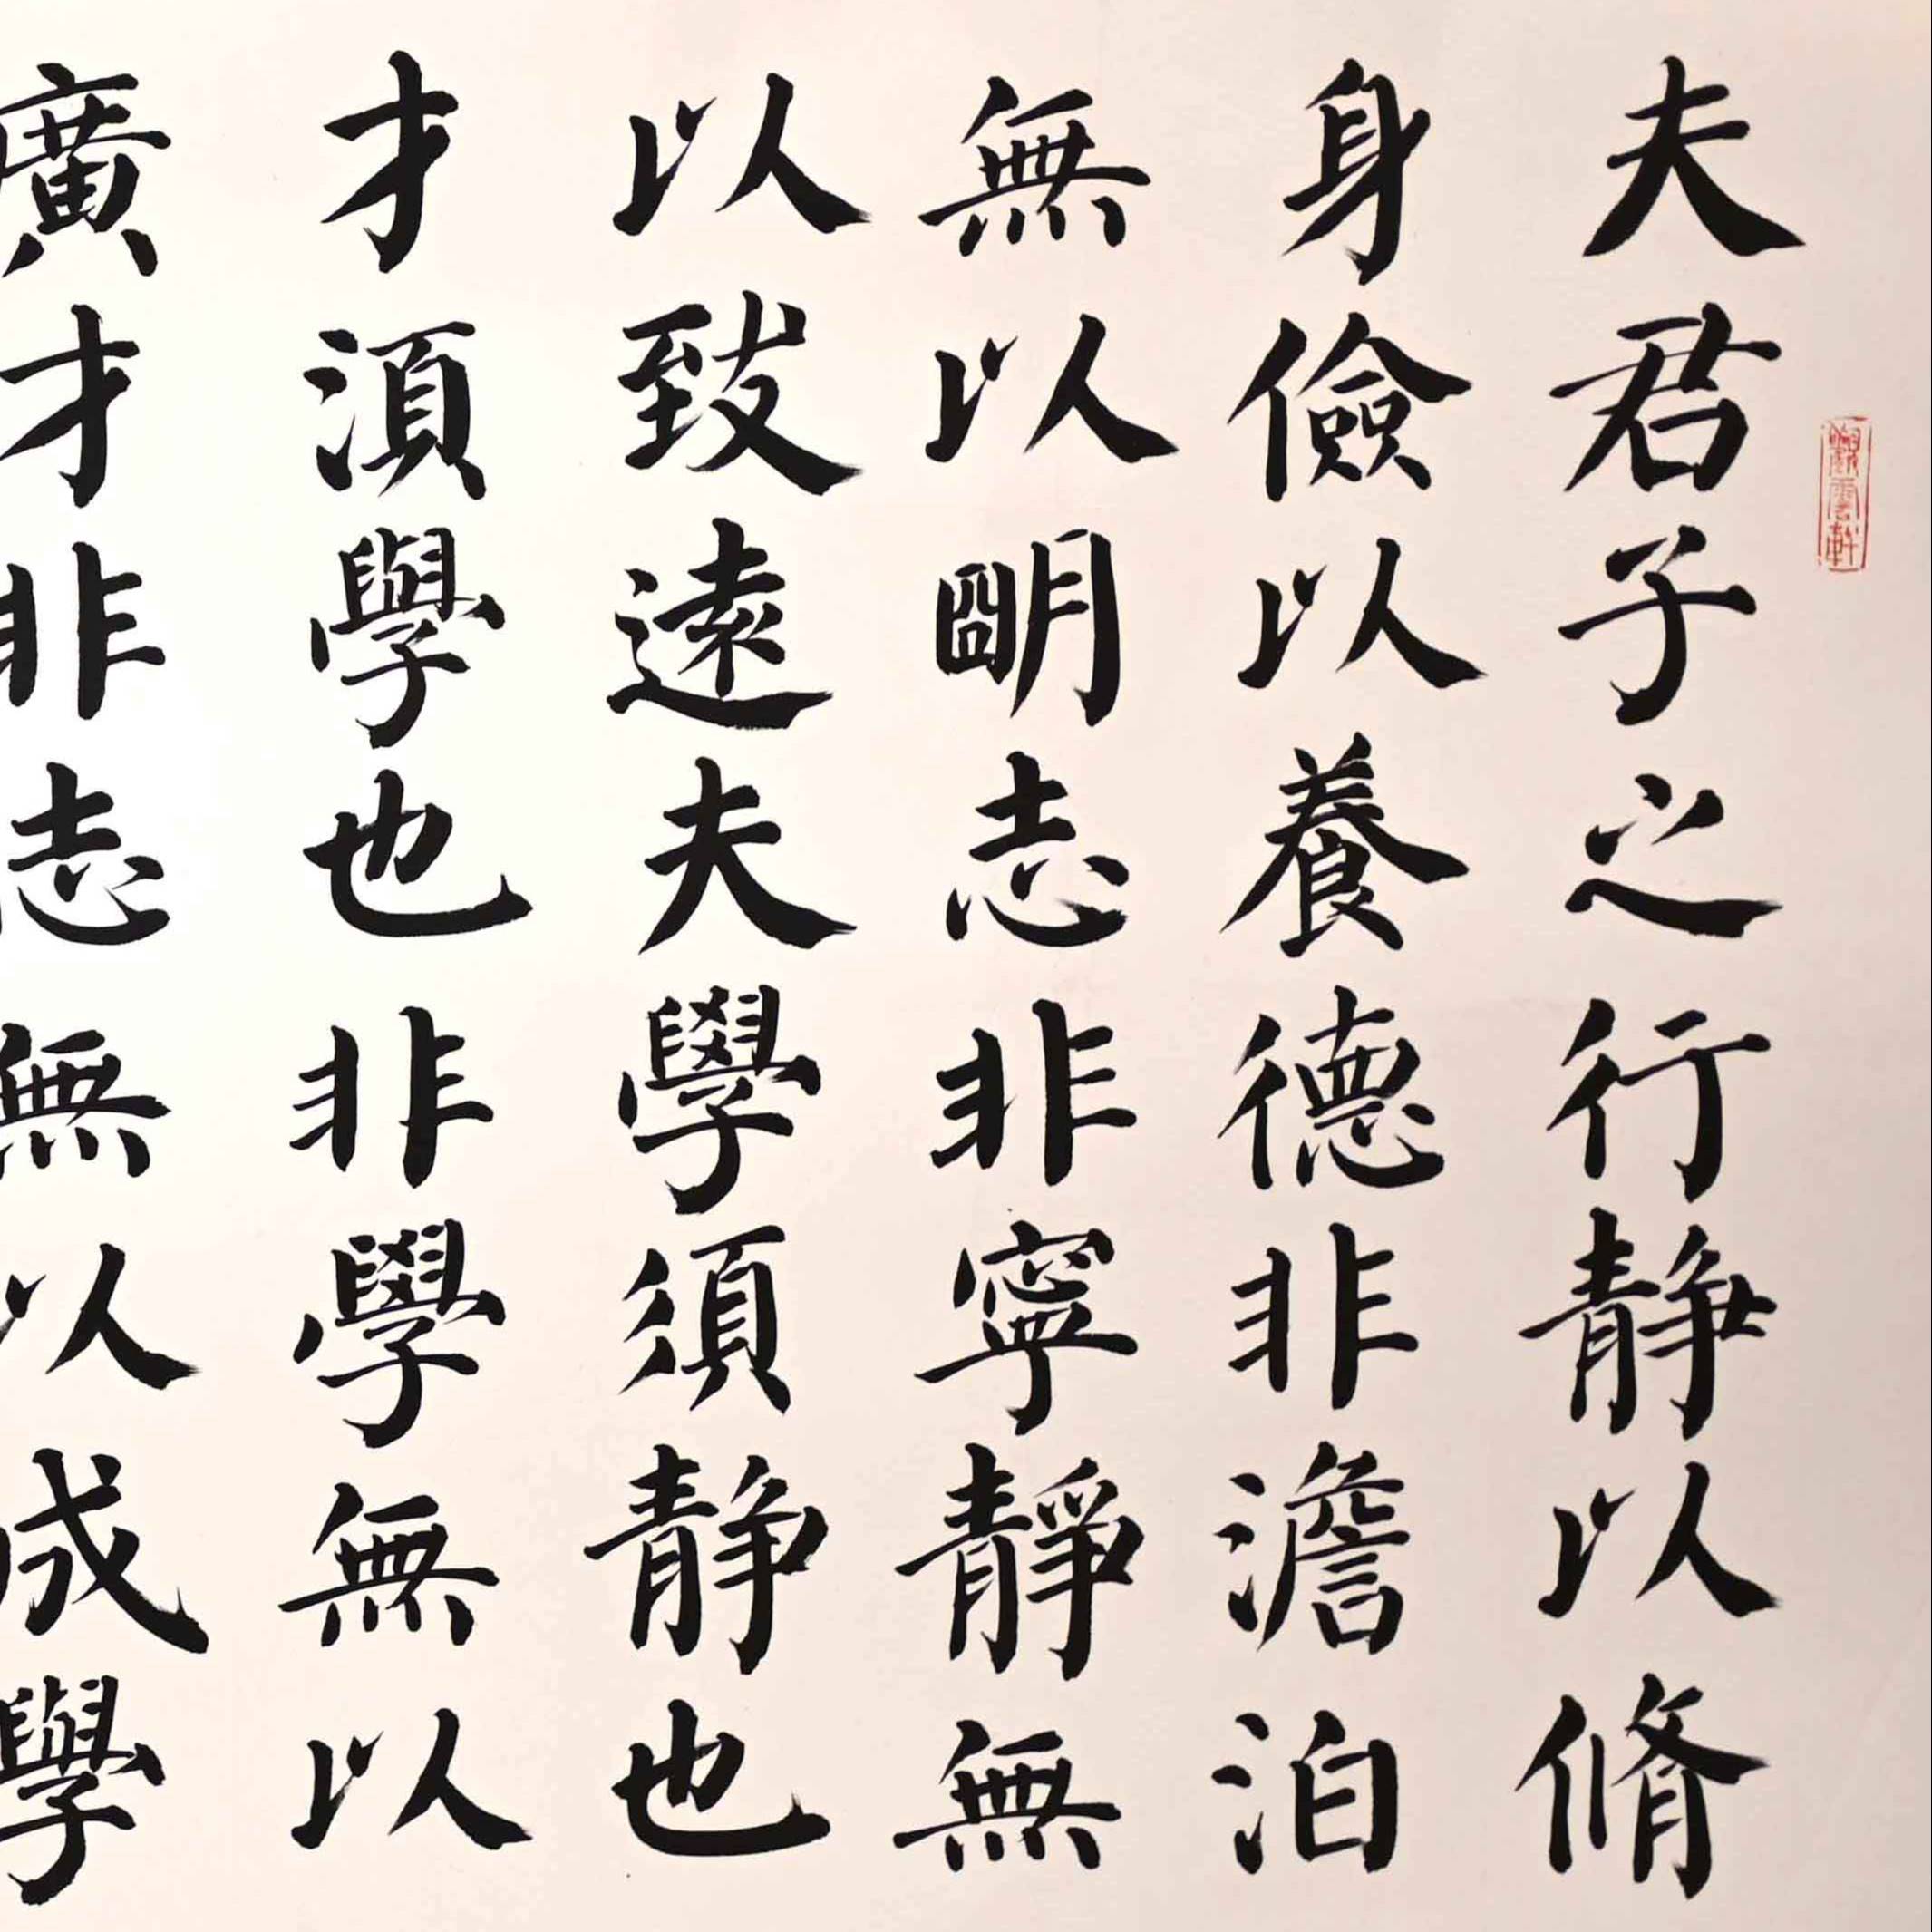 夫君子之行靜以脩
身儉以養德非澹泊
無以明志非寧靜無
以致遠夫學須靜也
才須學也非學無以
廣才非志無以成學